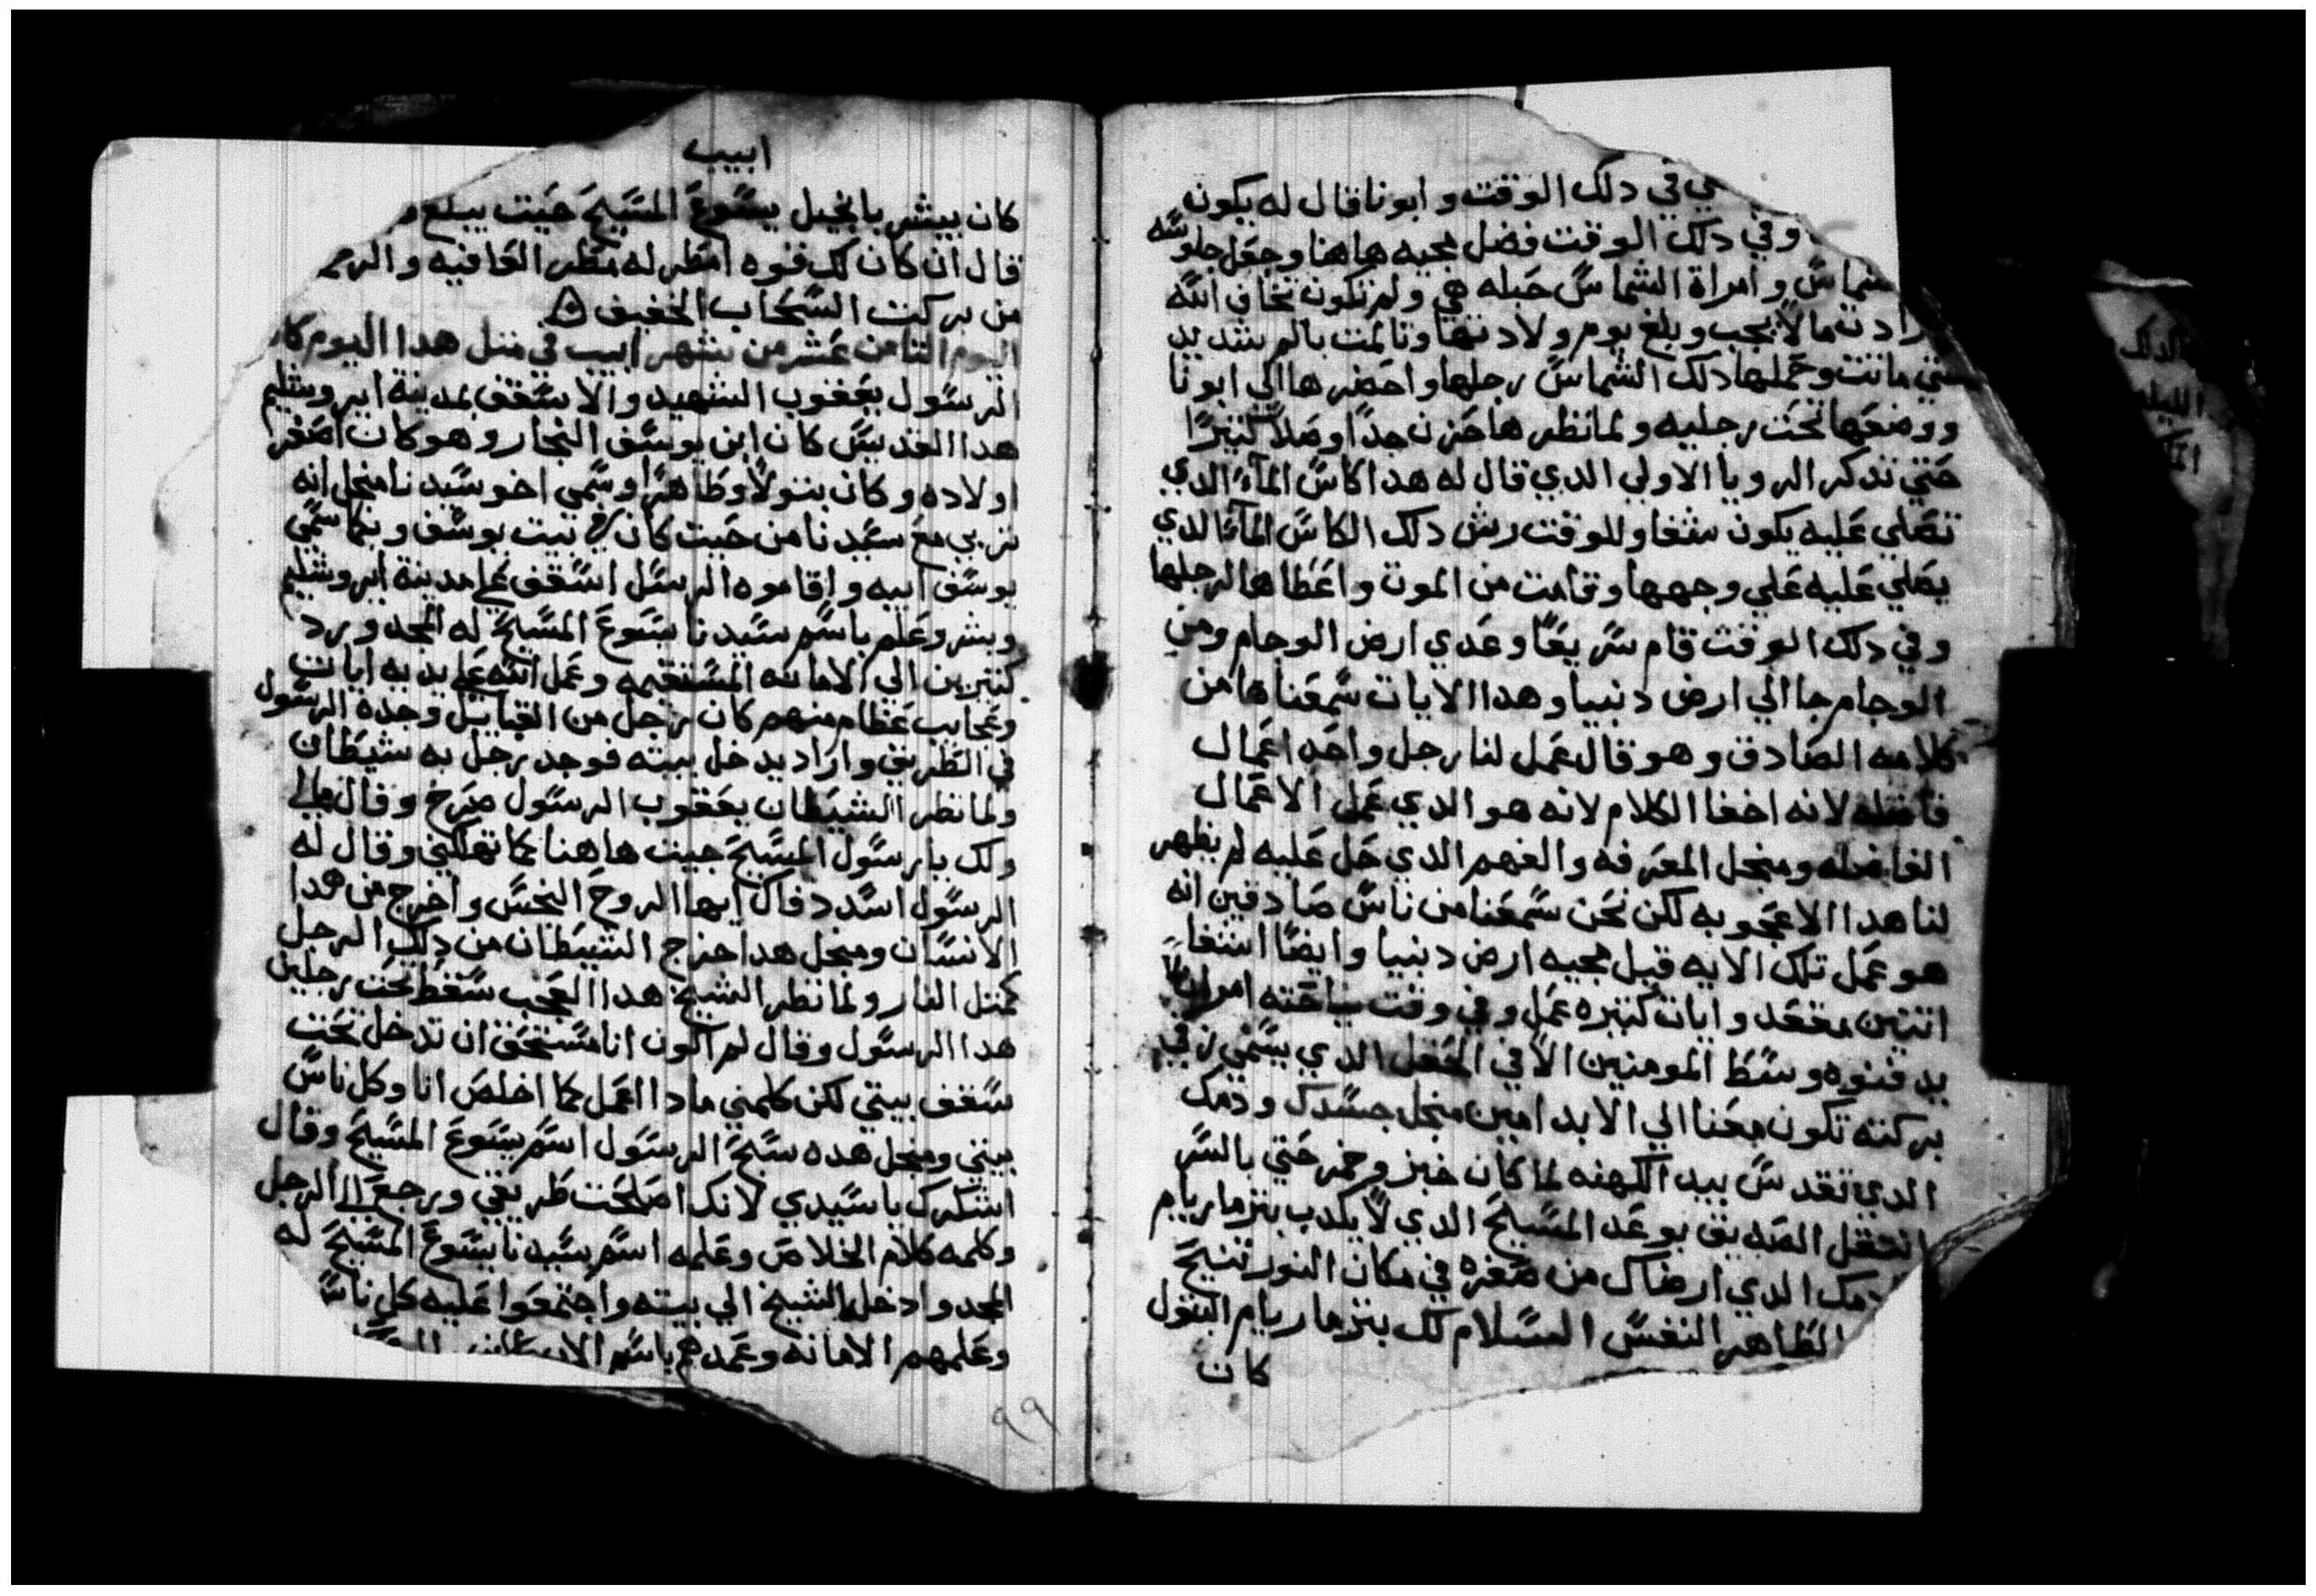 في دلك الوقت وابونا قال له يكون
وفي دلك الوقت فضل مجيه هاهنا وجعل جلوسه
شماس وامراة الشماس حبله هي ولم تكون تخاف الله
ما لا يجب وبلغ يوم ولادتها وتالمت بالم شديد
ماتت وحملها دلك الشماس رجلها واحضرها الي ابونا
ووضعها تحت رجليه ولما نظرها حزن جدا وصلا كتيرا
حتي تدكر الرويا الاولي الدي قال له هدا كاس الماء الدي
تصلي عليه يكون شفا وللوقت رش دلك الكاس الماء الدي
يصلي عليه علي وجهها وقامت من الموت واعطاها لرجلها
وفي دلك الوقت قام سريعا وعدي ارض الوجام ومن
الوجام جا الي ارض دنبيا وهدا الايات سمعناها من
كلامه الصادق وهو قال عمل لنا رجل واحد اعمال
فاضله لانه اخفا الكلام لانه هو الدي عمل الاعمال
الفاضله ومنجل المعرفه والفهم الدي حل عليه لم يظهر
لنا هدا الاعجوبه لكن نحن سمعنا من ناس صادقين انه
هو عمل تلك الايه قبل مجيه ارض دنبيا وايضا اشفا
اتنين مقعد وايات كتيره عمل وفي وقت نياحته امر ان لا
يدفنوه وسط المومنين الا في الحقل الدي يسمي
بركته تكون معنا الي الابد امين منجل جسدك ودمك
الدي تقدس بيد الكهنه لما كان خبز وخمر حتي بالسر
انتقل الصديق بوعد المسيح الدي لا يكدب بنزماريام
دمك الدي ارضاك من صغره في مكان النور تنيح
الطاهر النفس السلام لك بنزماريام البتول
كان
ابيب
كان يبشر بانجيل يسوع المسيح حيت يبلغ
قال ان كان لك قوه امطر له مطر العافيه والرحمه
من بركت السحاب الخفيف
اليوم التامن عشر من شهر ابيب في متل هدا اليوم كان
الرسول يعقوب الشهيد والاسقف بمدينة ايروشليم
هدا القديس كان ابن يوسف النجار وهو كان اصغر
اولاده وكان بتولا وطاهرا وسمي اخو سيدنا منجل انه
تربي مع سيدنا من حيت كان في بيت يوسف وبما سمي
يوسف ابيه واقاموه الرسل اسقف علي مدينة ايروشليم
وبشر وعلم باسم سيدنا يسوع المسيح له المجد ورد
كتيرين الي الامانه المستقيمه وعمل الله علي يديه ايات
وعجايب عظام منهم كان رجل من القبايل وجده الرسول
في الطريق واراد يدخل بيته فوجد رجل به شيطان
ولما نظر الشيطان يعقوب الرسول صرخ وقال مالي
ولك يا رسول المسيح جيت هاهنا كما تهلكني وقال له
الرسول اسدد فاك ايها الروح النجس واخرج من هدا
الانسان ومنجل هدا خرج الشيطان من دلك الرجل
كمتل النار ولما نظر الشيخ هدا العجب سقط تحت رجلين
هدا الرسول وقال لم اكون انا مستحق ان تدخل تحت
سقف بيتي لكن كلمني مادا اعمل كما اخلص انا وكل ناس
بيتي ومنجل هده سبح الرسول اسم يسوع المسيح وقال
اشكرك يا سيدي لانك اصلحت طريقي ورجع الي الرجل
وكلمه كلام الخلاص وعلمه اسم سيدنا يسوع المسيح له
المجد وادخله الشيخ الي بيته واجتمعوا عليه كل ناس
وعلمهم الامانه وعمدهم باسم الاب
٩٩